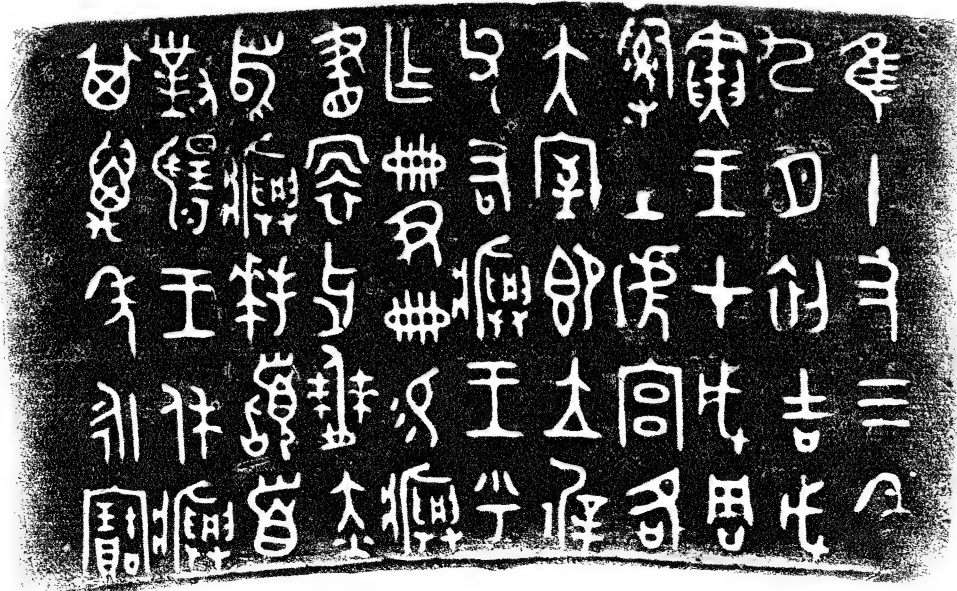 隹十又三年
九月初吉戊
寅王才成周
𤔲土淲宮各
大室即立𢕌
父右𤼈王乎
乍冊尹冊易𤼈
畫 牙僰赤
舄𤼈拜𩒨首
對揚王休𤼈
其萬年永寶